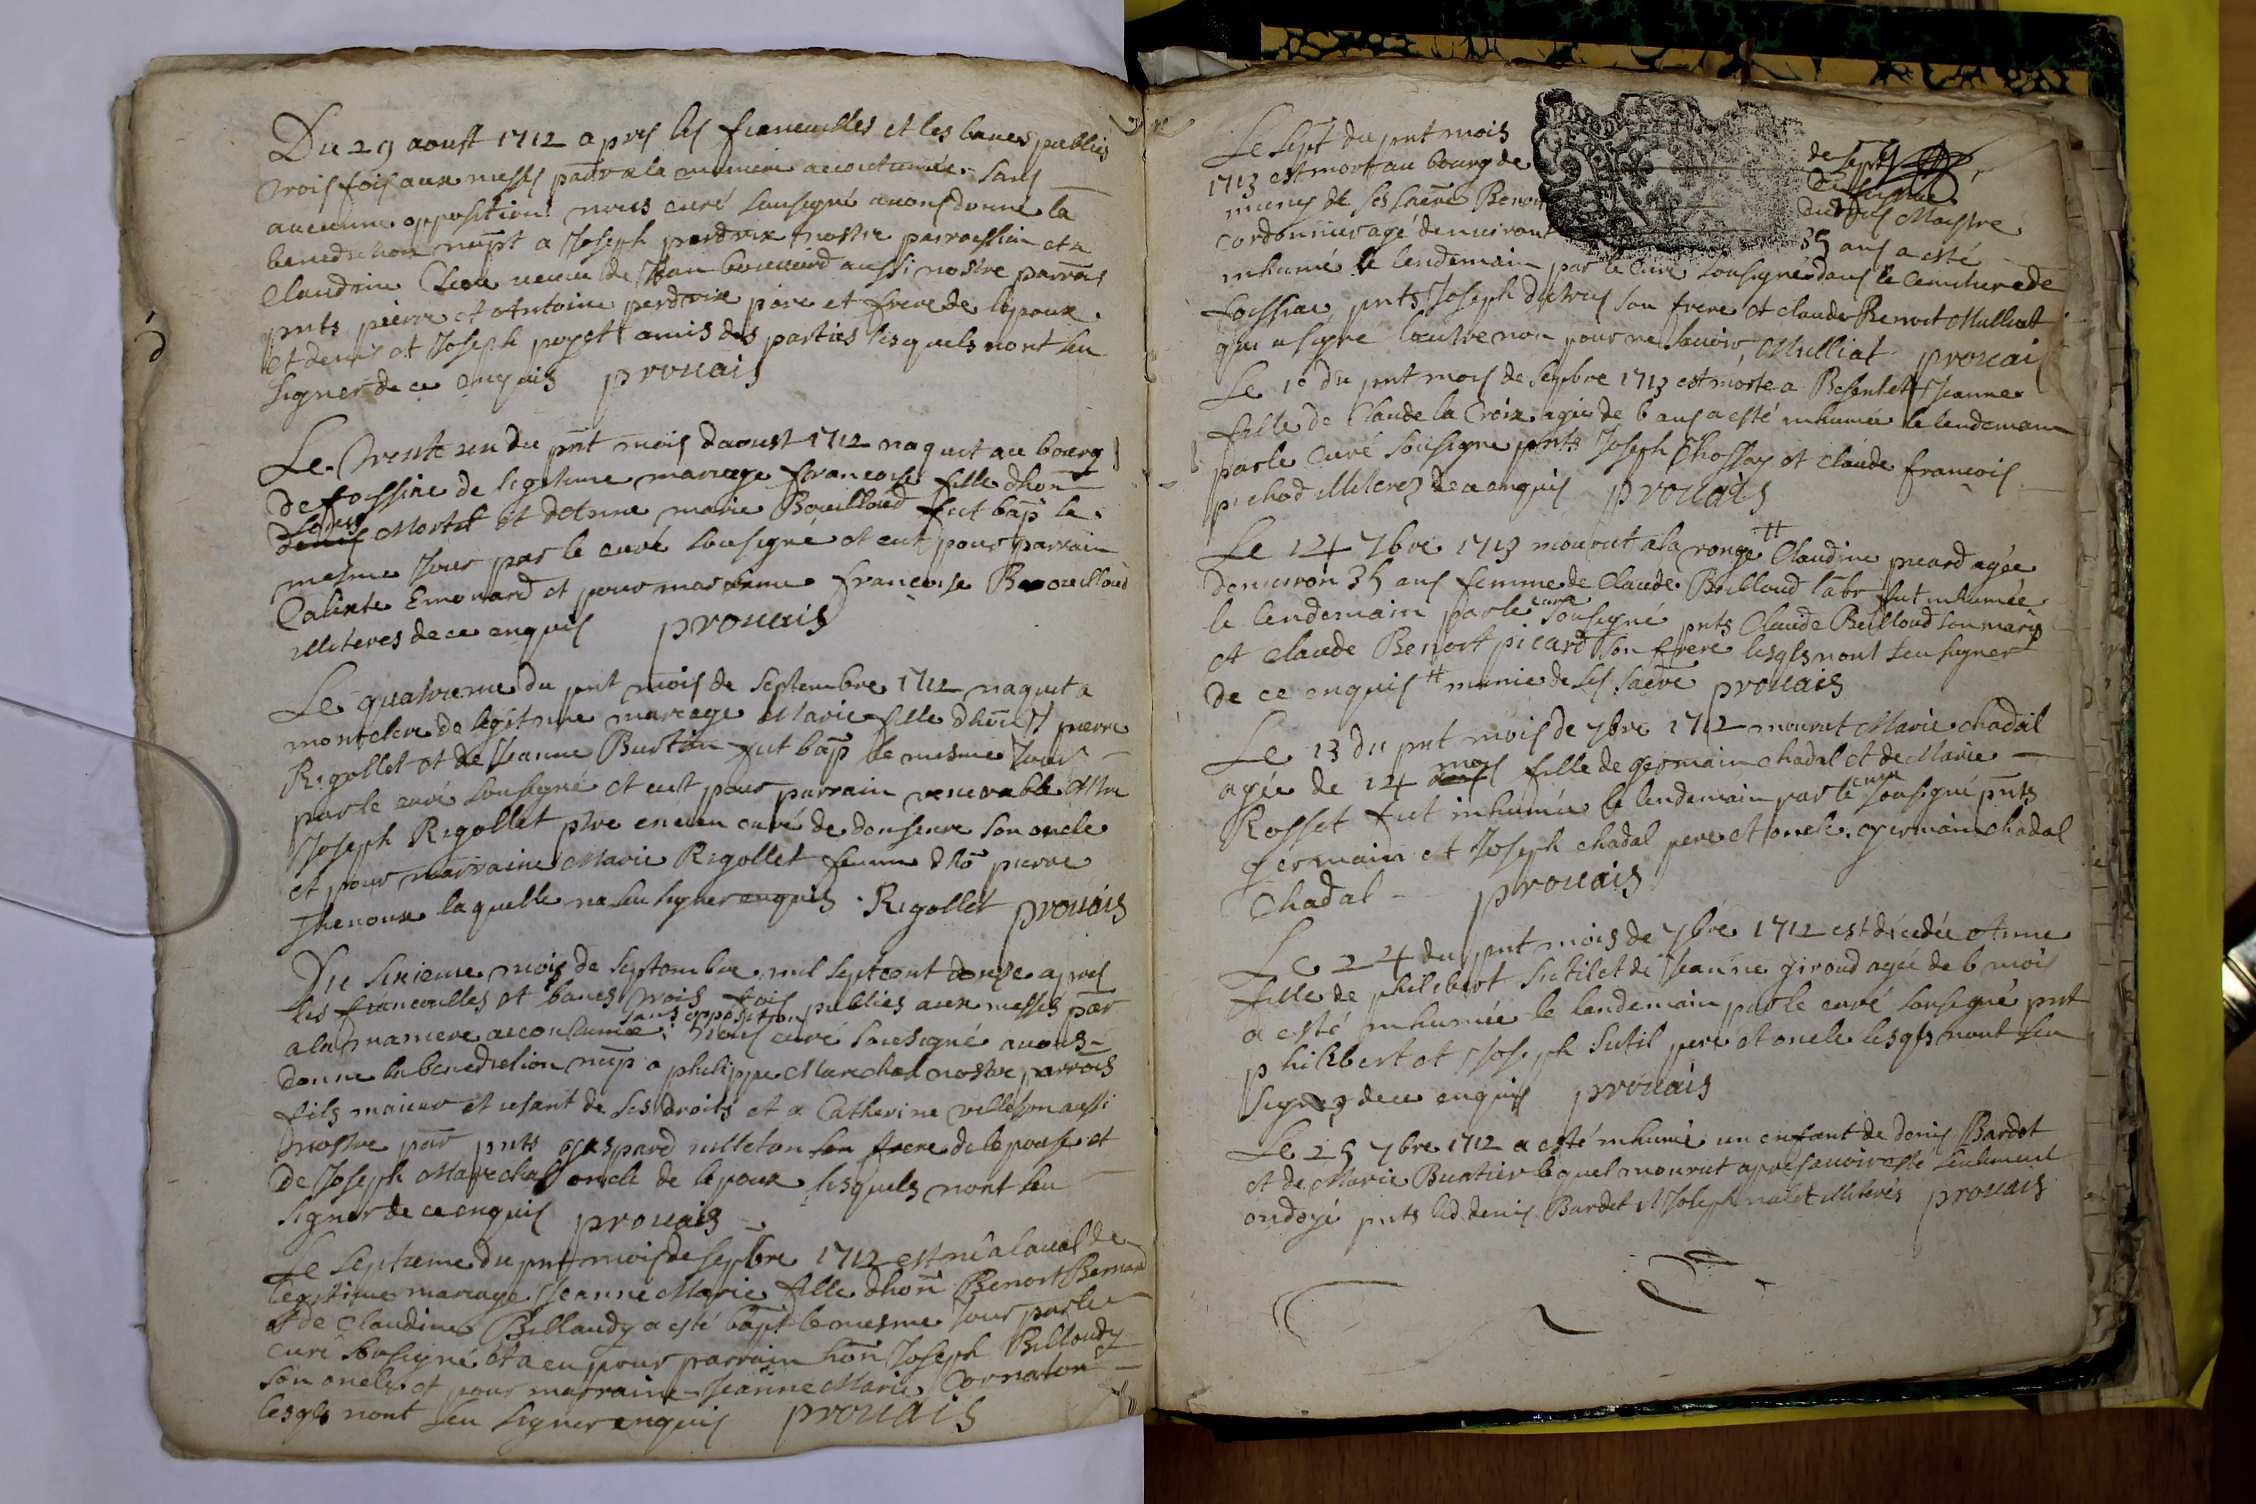 Du 29 aoust 1712 apres les fiancailles et les bancs publies
trois fois aux messes parr a la maniere accoutumée sans
aucune opposition nous curé sousigné avons donné la
benediction nupt a Joseph perdrix nostre parroissien et a
Claudine veuve de Jean bouvard aussi nostre parrois
pnts pierre et Antoine perdrix pere et frere de lepoux
et denis et Joseph poget amis des parties lesquels nont seu
signer de ce enquis prouais
Le trente un du pnt mois daoust 1712 naquit au bourg
de foissiae de legitime mariage francoise fille dhon
denis Mortel et detine marie Bouilloud fut bap le
mesme Jour par le curé sousigné et eut pour parrain
Calixte Emonard et pour marrainne francoise Bouilloud
illiteres de ce enquis prouais
Le quatrieme du pnt mois de Septembre 1712 naquit a
montclere de legitime mariage Marie fille dhon pierre
Rigollet et de Jeanne Burtin fut bap le mesme Jour
par le curé sousigné et eut pour parrain venerable Mre
Joseph Rigollet ptre encien curé de donseure son oncle
et pour marraine Marie Rigollet femme dho pierre
Thenoux laquelle na seu signer enquis Rigollet prouais
Du sixieme mois de Septembre mil sept cent douze apres
les fiancailles et bancs trois fois publies aux messes par
a la maniere accoutumée sans opposition nous curé sousigné avons
donne la benediction nup a philippe Marechal nostre parrois
fils maieur et usant de ses droits et a Catherine velleton aussi
nostre par pnts gaspard velleton son frere de lepouse et
de Joseph Marechal oncle de lepoux lesquels nont seu
signer de ce enquis prouais
Le septieme du pnt mois de sepbre 1712 est né a laval de
legitime mariage Jeanne Marie fille dhon Benoit Bernard
et de Claudine Billaudy a esté bapt le mesme Jour par le
curé sousigné et a eu pour parrain hon Joseph Billoudy
son oncle et pour marraine Jeanne Marie Cornaton
lesqls nont seu signer enquis prouais
Le sept du pnt mois de
1713 est mort au bourg de
munis de ses sacre Benoit dutruis Maistre
cordonnier agé denviront 35 ans a esté
inhumé le lendemain par le curé sousigné dans le cemitiere de
foissiac pnts Joseph dutruis son frere et claude Benoit Mulliat
qui a signe lautre non pour ne savoir, Mulliat prouais
Le 1e du pnt mois de Sepbre 1713 est morte a Besentet Jeanne
fille de Claude la Croix agée de 6 ans a esté inhumée le lendemain
par le curé sousigne pnts Joseph Chossay et claude francois
pichod illiterez de ce enquis prouais
Le 14 7bre 1713 mourut a la ronge ++ Claudine picard agée
denviron 35 ans femme de Claude Beilloud labr fut inhumée
le lendemain par le curé sousigné pnts Claude Beilloud son mary
et claude Benoit picard son frere lesqls nont seu signer
de ce enquis ++ munie de ses sacre prouais
Le 13 du pnt mois de 7bre 1712 mourut Marie chadal
agée de 14 mois fille de germain chadal et de Marie
Rosset fut inhumée le lendemain par le curé sousigné pnts
germain et Joseph chadal pere et oncle. germain chadal
Chadal prouais
Le 24 du pnt mois de 7bre 1712 est décedée Anne
fille de philibert Sutil et de Jeanne giroud agée de 6 mois
a esté inhumée le lendemain par le curé sousigné pnt
philibert et Joseph Sutil pere et oncle lesqls nont seu
signer de ce enquis prouais
Le 25 7bre 1712 a esté inhumé un enfant de denis Bardet
et de Marie Burtier lequel mourut apres avoir esté seulement
ondoyé pnts led denis Bardet et Joseph illiterés prouais